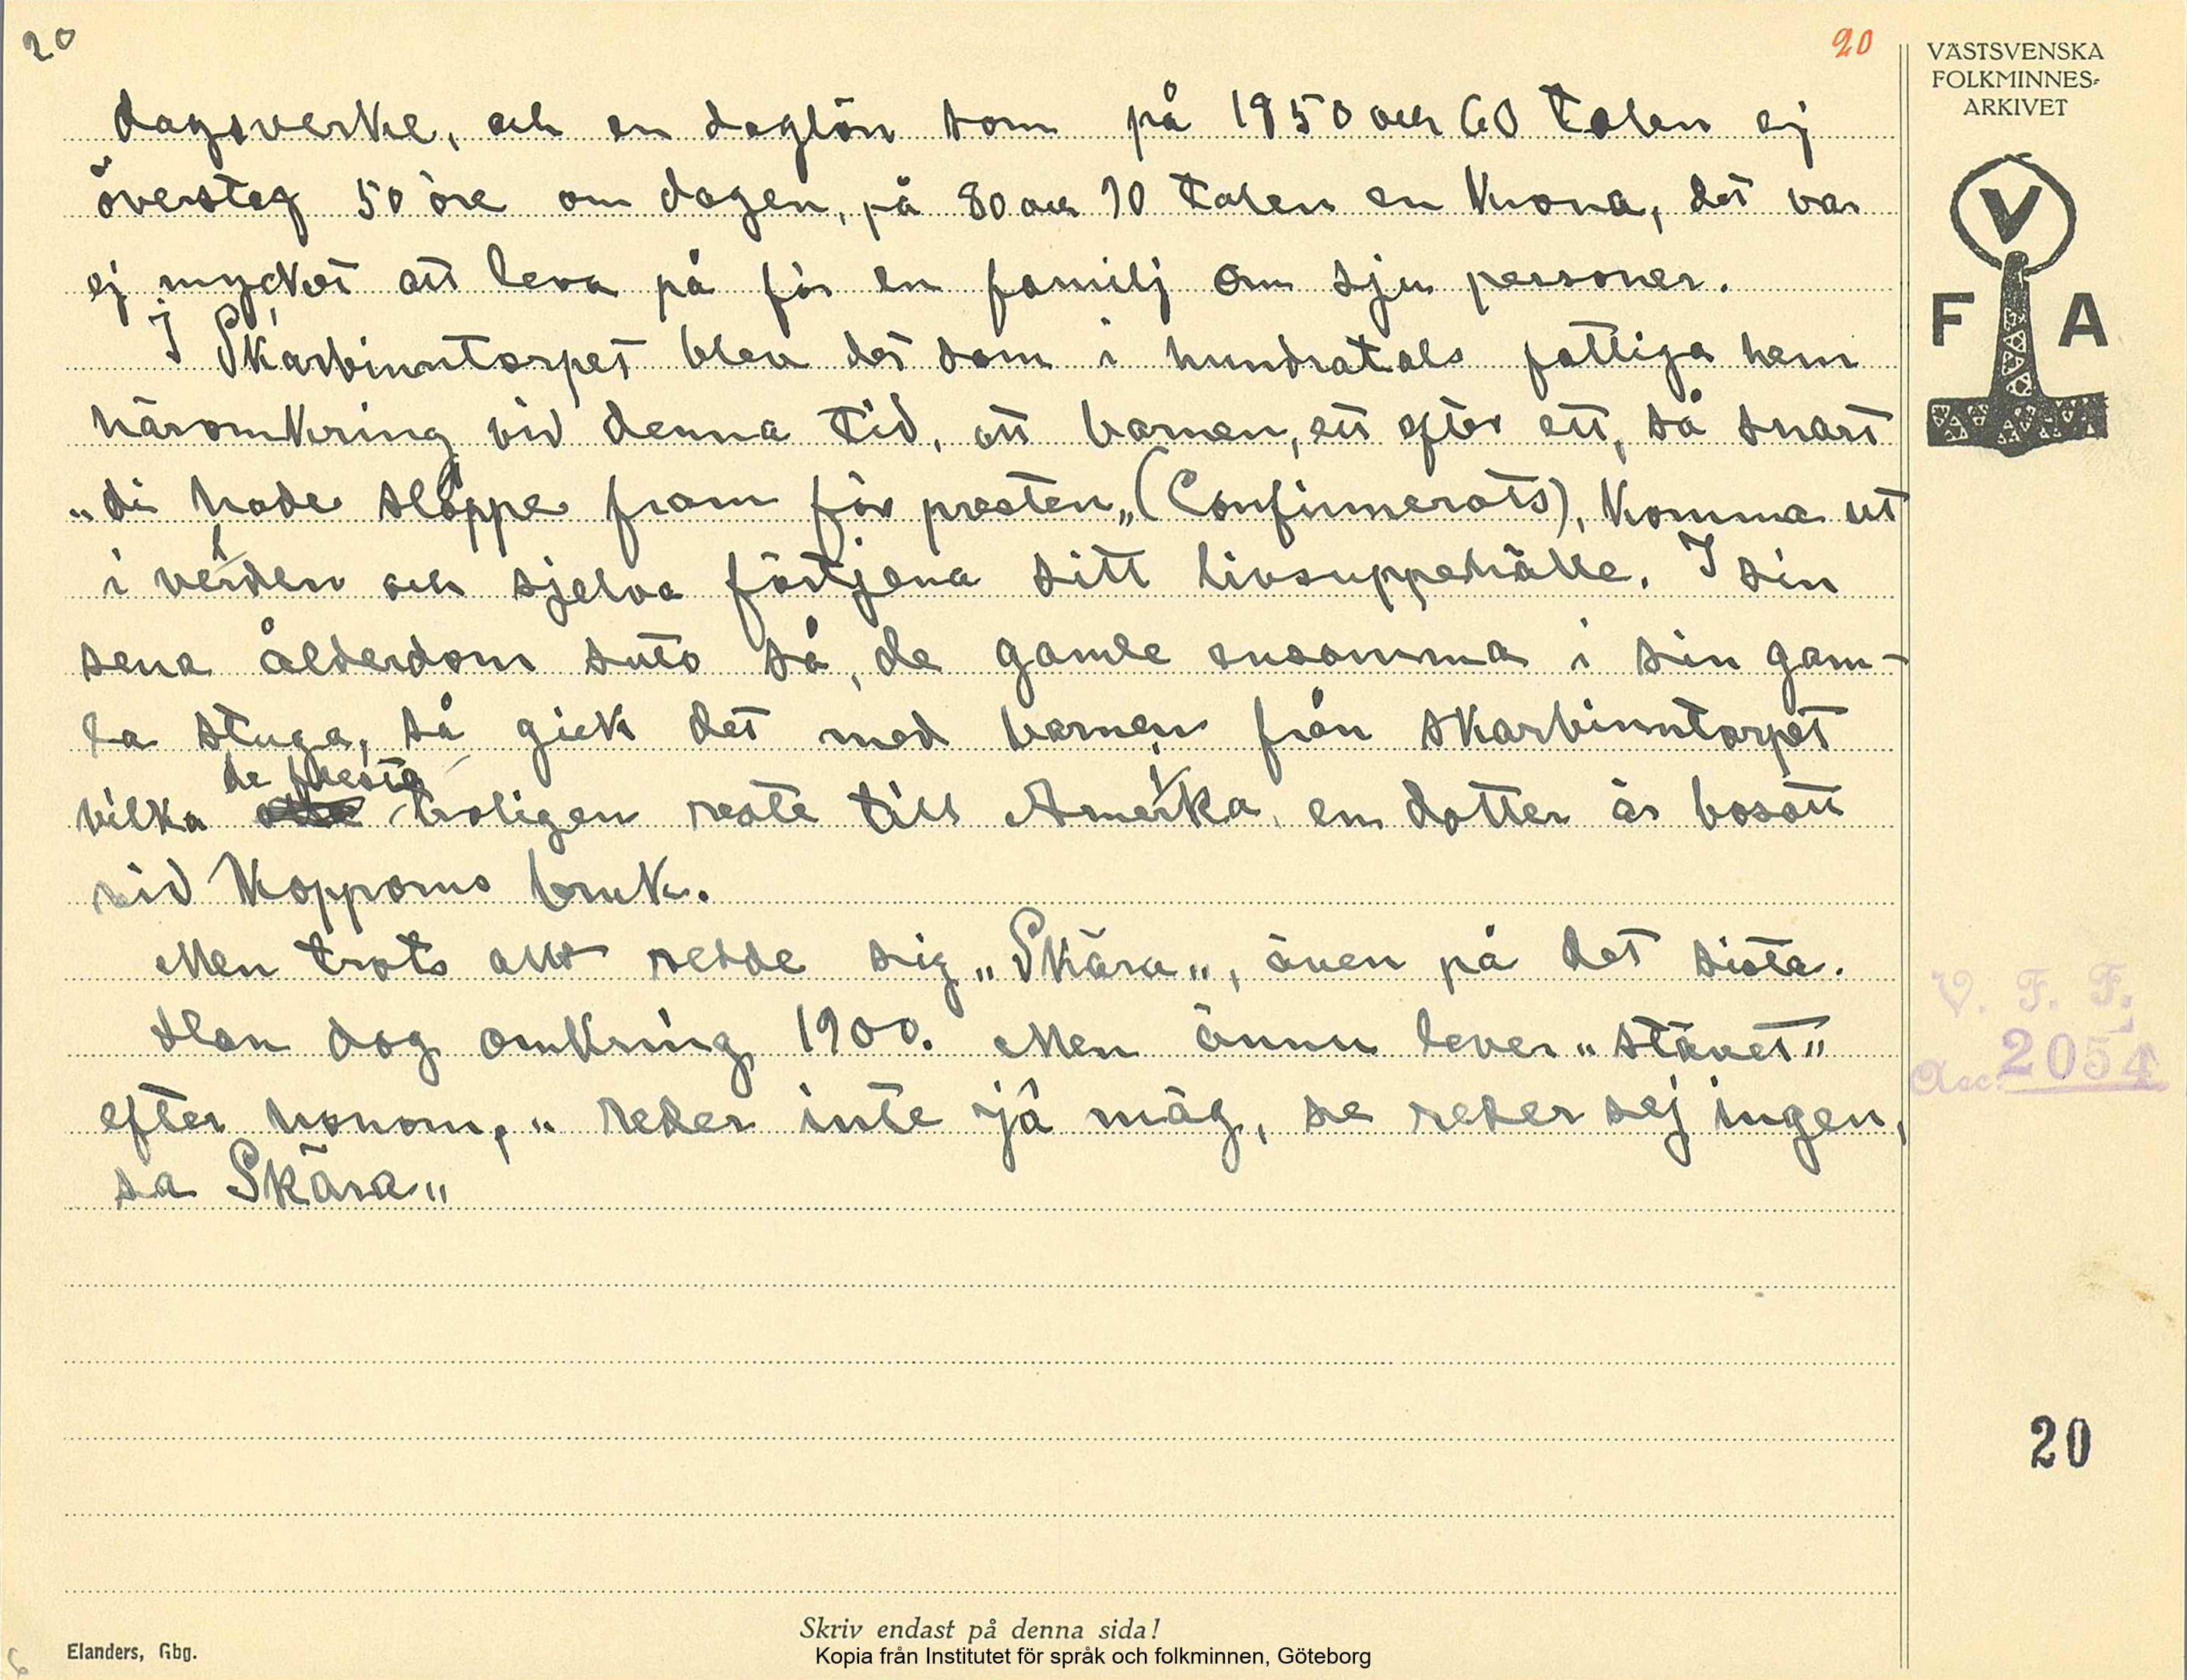 20
20
VÄSTSVENSKA
FOLKMINNES-
ARKIVET
V
F A
dagsverke, och en daglön som på 1850 och 60 talen ej
översteg 50 öre om dagen, på 80 och 90 talen en krona, det var
ej mycket att leva på för en familj om sju personer.
I Skarbinntorpet blev det som i hundratals fattiga hem
häromkring vid denna tid, att barnen, ett efter ett, så snart
„di hade släppe fram för presten„ (Confirmerats), komma ut
i verlden och sjelva förtjena sitt livsuppehälle. I sin
sena ålderdom suto så, de gamle ensamma i sin gam-
la stuga, så gick det med barnen från skarbinntorpet
vilka de flesta troligen reste till Amerika, en dotter är bosatt
vid Koppoms bruk.
Men trots allt redde sig „Skära„, även på det sista.
Han dog omkring 1900. Men ännu lever „stävet„
efter honom, „ reder inte jâ mäg, se reder sej ingen,
sa Skära„
V. F. F.
Acc. 2054
20
Skriv endast på denna sida!
Elanders, Gbg.
Kopia från Institutet för språk och folkminnen, Göteborg